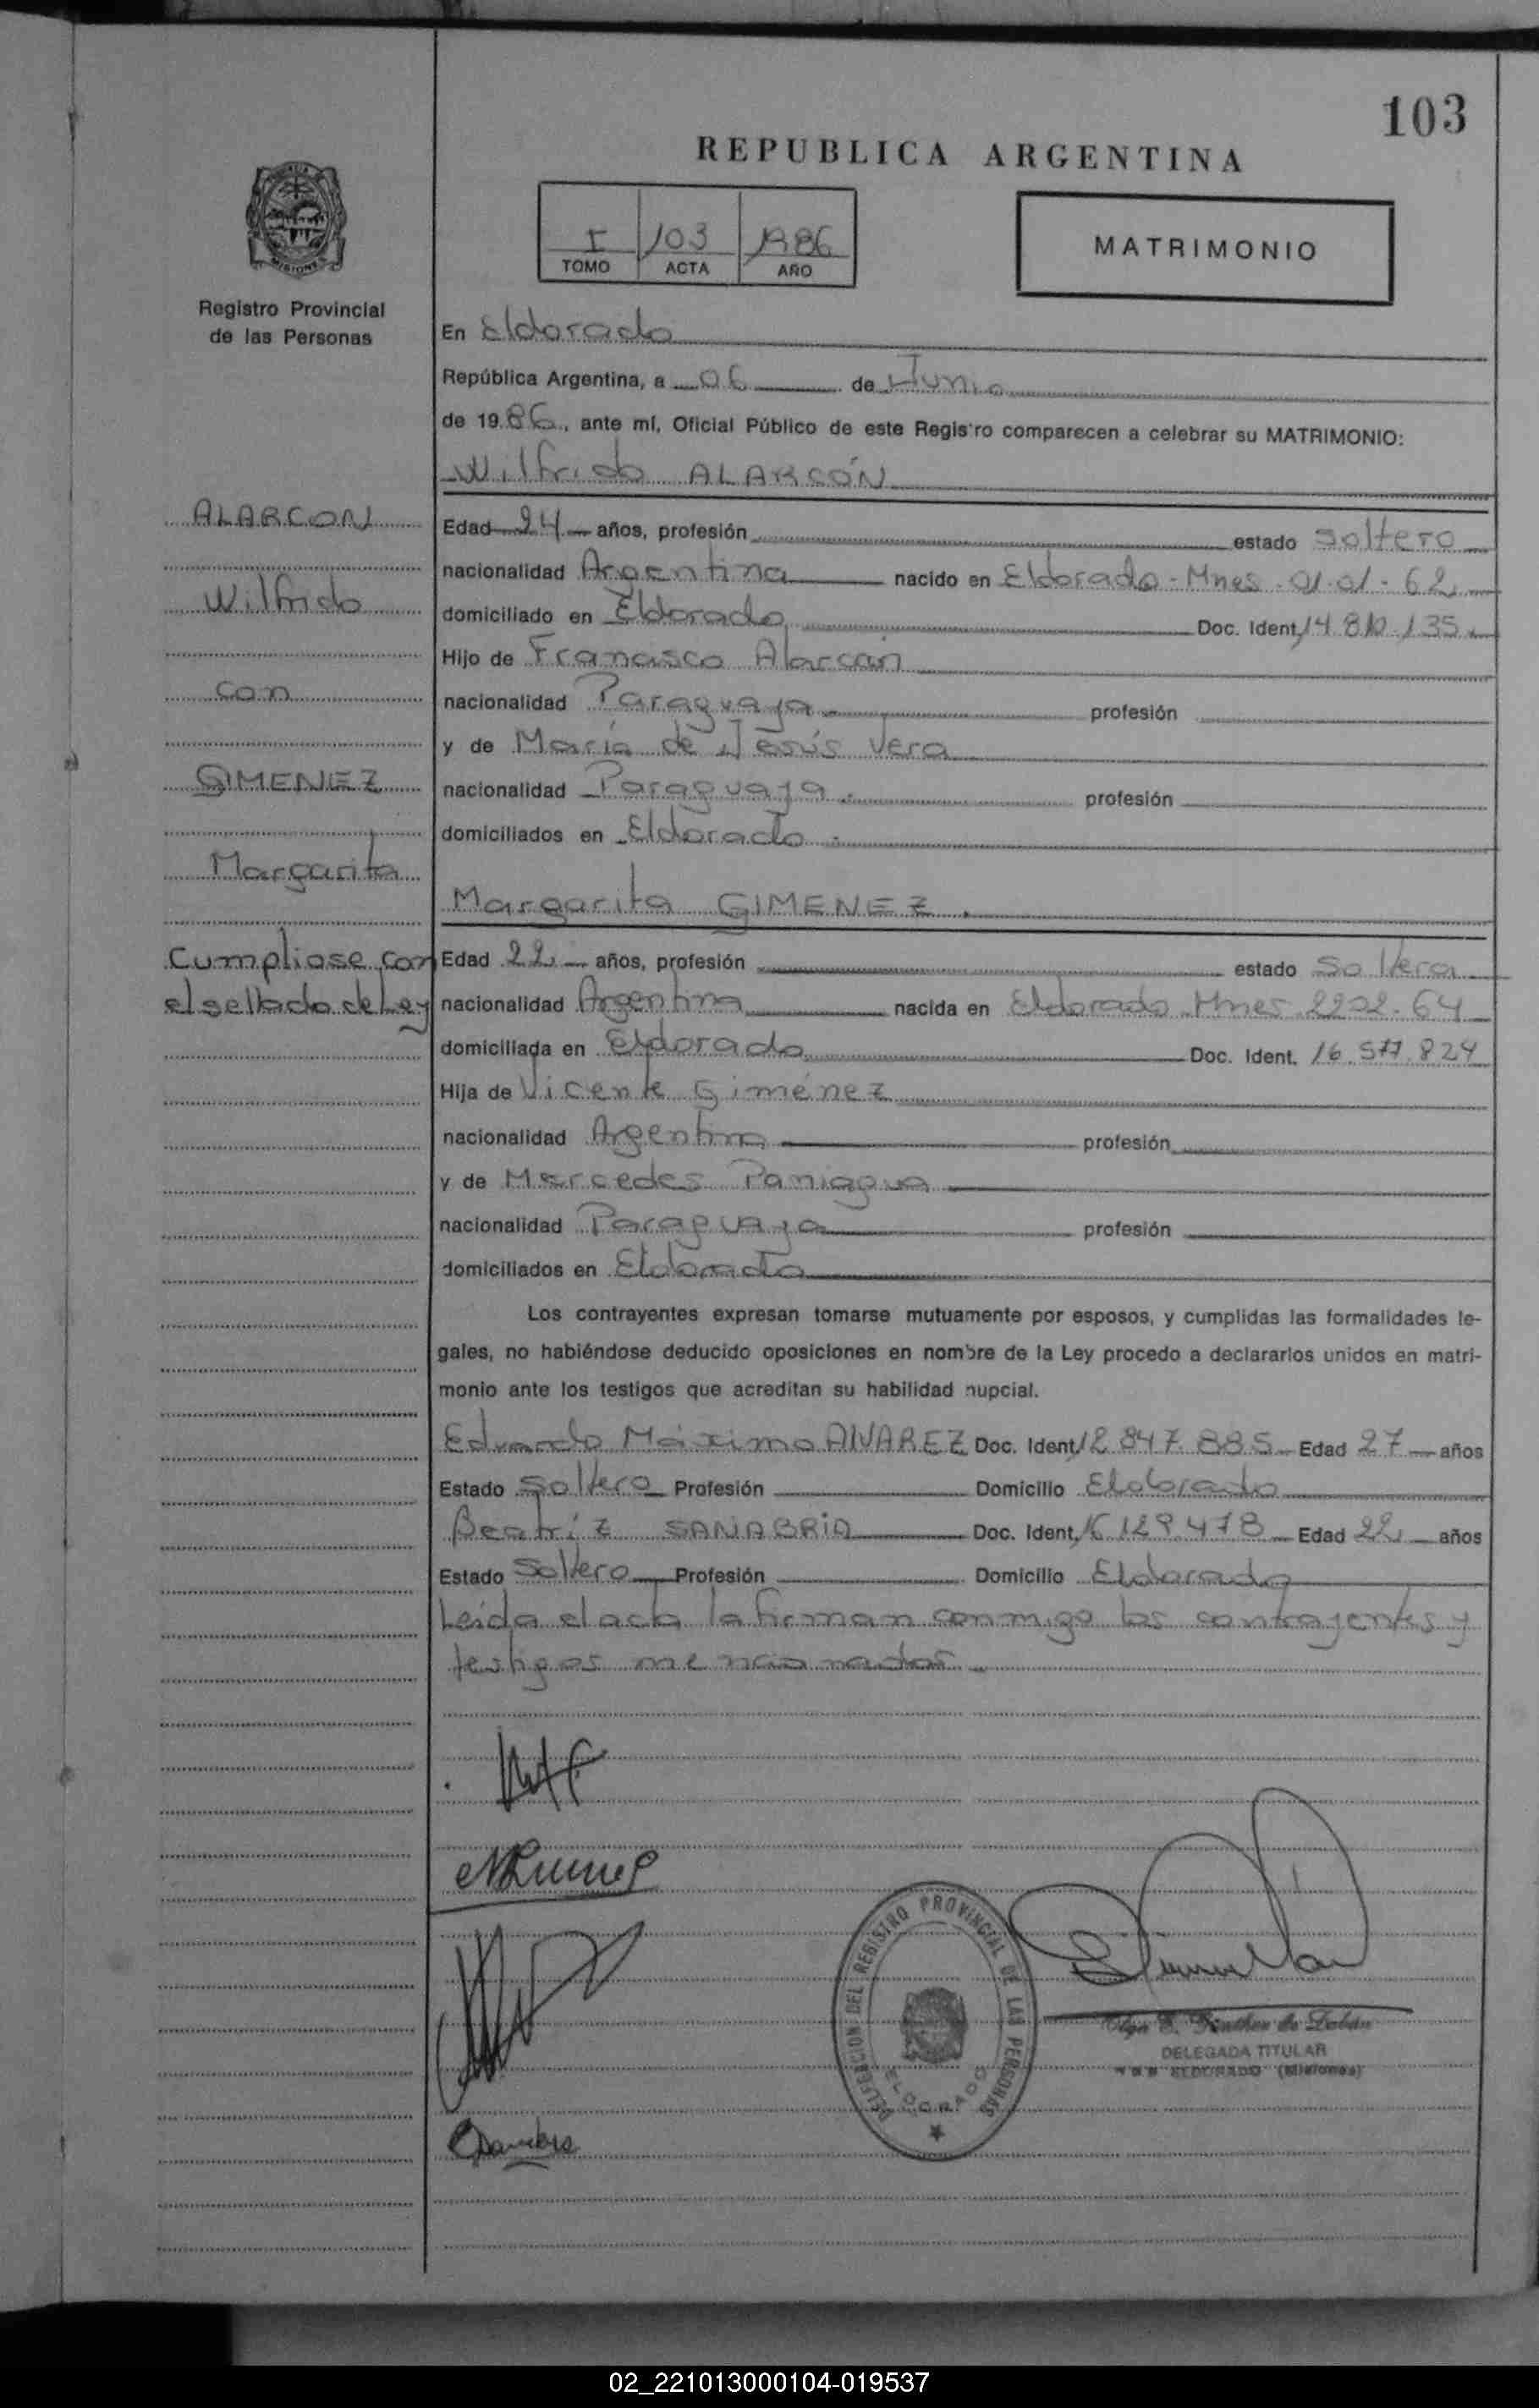 103
REPUBLICA ARGENTINA
I 103 1986
TOMO ACTA AÑO
MATRIMONIO
MISIONES
Registro Provincial
de las Personas
En Eldorado
República Argentina, a 06 de Junio
de 1986, ante mí, Oficial Público de este Registro comparecen a celebrar su MATRIMONIO:
Wilfrido ALARCÓN
ALARCON
Wilfrido
con
GIMENEZ
Margarita
Cumpliose con
el sellado de Ley
Edad 24 años, profesión estado soltero
nacionalidad Argentina nacido en Eldorado - Mnes - 01-01-62
domiciliado en Eldorado Doc. Ident. 14.810.135
Hijo de Francisco Alarcón
nacionalidad Paraguaya profesión
y de María de Jesús Vera
nacionalidad Paraguaya profesión
domiciliados en Eldorado
Margarita GIMENEZ.
Edad 22 años, profesión estado soltera
nacionalidad Argentina nacida en Eldorado Mnes 22-02-64
domiciliada en Eldorado Doc. Ident. 16.577.824
Hija de Vicente Giménez
nacionalidad Argentina profesión
y de Mercedes Paniagua
nacionalidad Paraguaya profesión
domiciliados en Eldorado
Los contrayentes expresan tomarse mutuamente por esposos, y cumplidas las formalidades le-
gales, no habiéndose deducido oposiciones en nombre de la Ley procedo a declararlos unidos en matri-
monio ante los testigos que acreditan su habilidad nupcial.
Eduardo Máximo ALVAREZ Doc. Ident. 12.847.885 Edad 27 años
Estado soltero Profesión Domicilio Eldorado
Beatríz SANABRIA Doc. Ident. 16.129.478 Edad 22 años
Estado Soltero Profesión Domicilio Eldorado
Leída el acta la firman conmigo los contrayentes y
testigos mencionados
DELEGACION DEL REGISTRO PROVINCIAL DE LAS PERSONAS
ELDORADO
DELEGADA TITULAR
ELDORADO (Misiones)
02_221013000104-019537